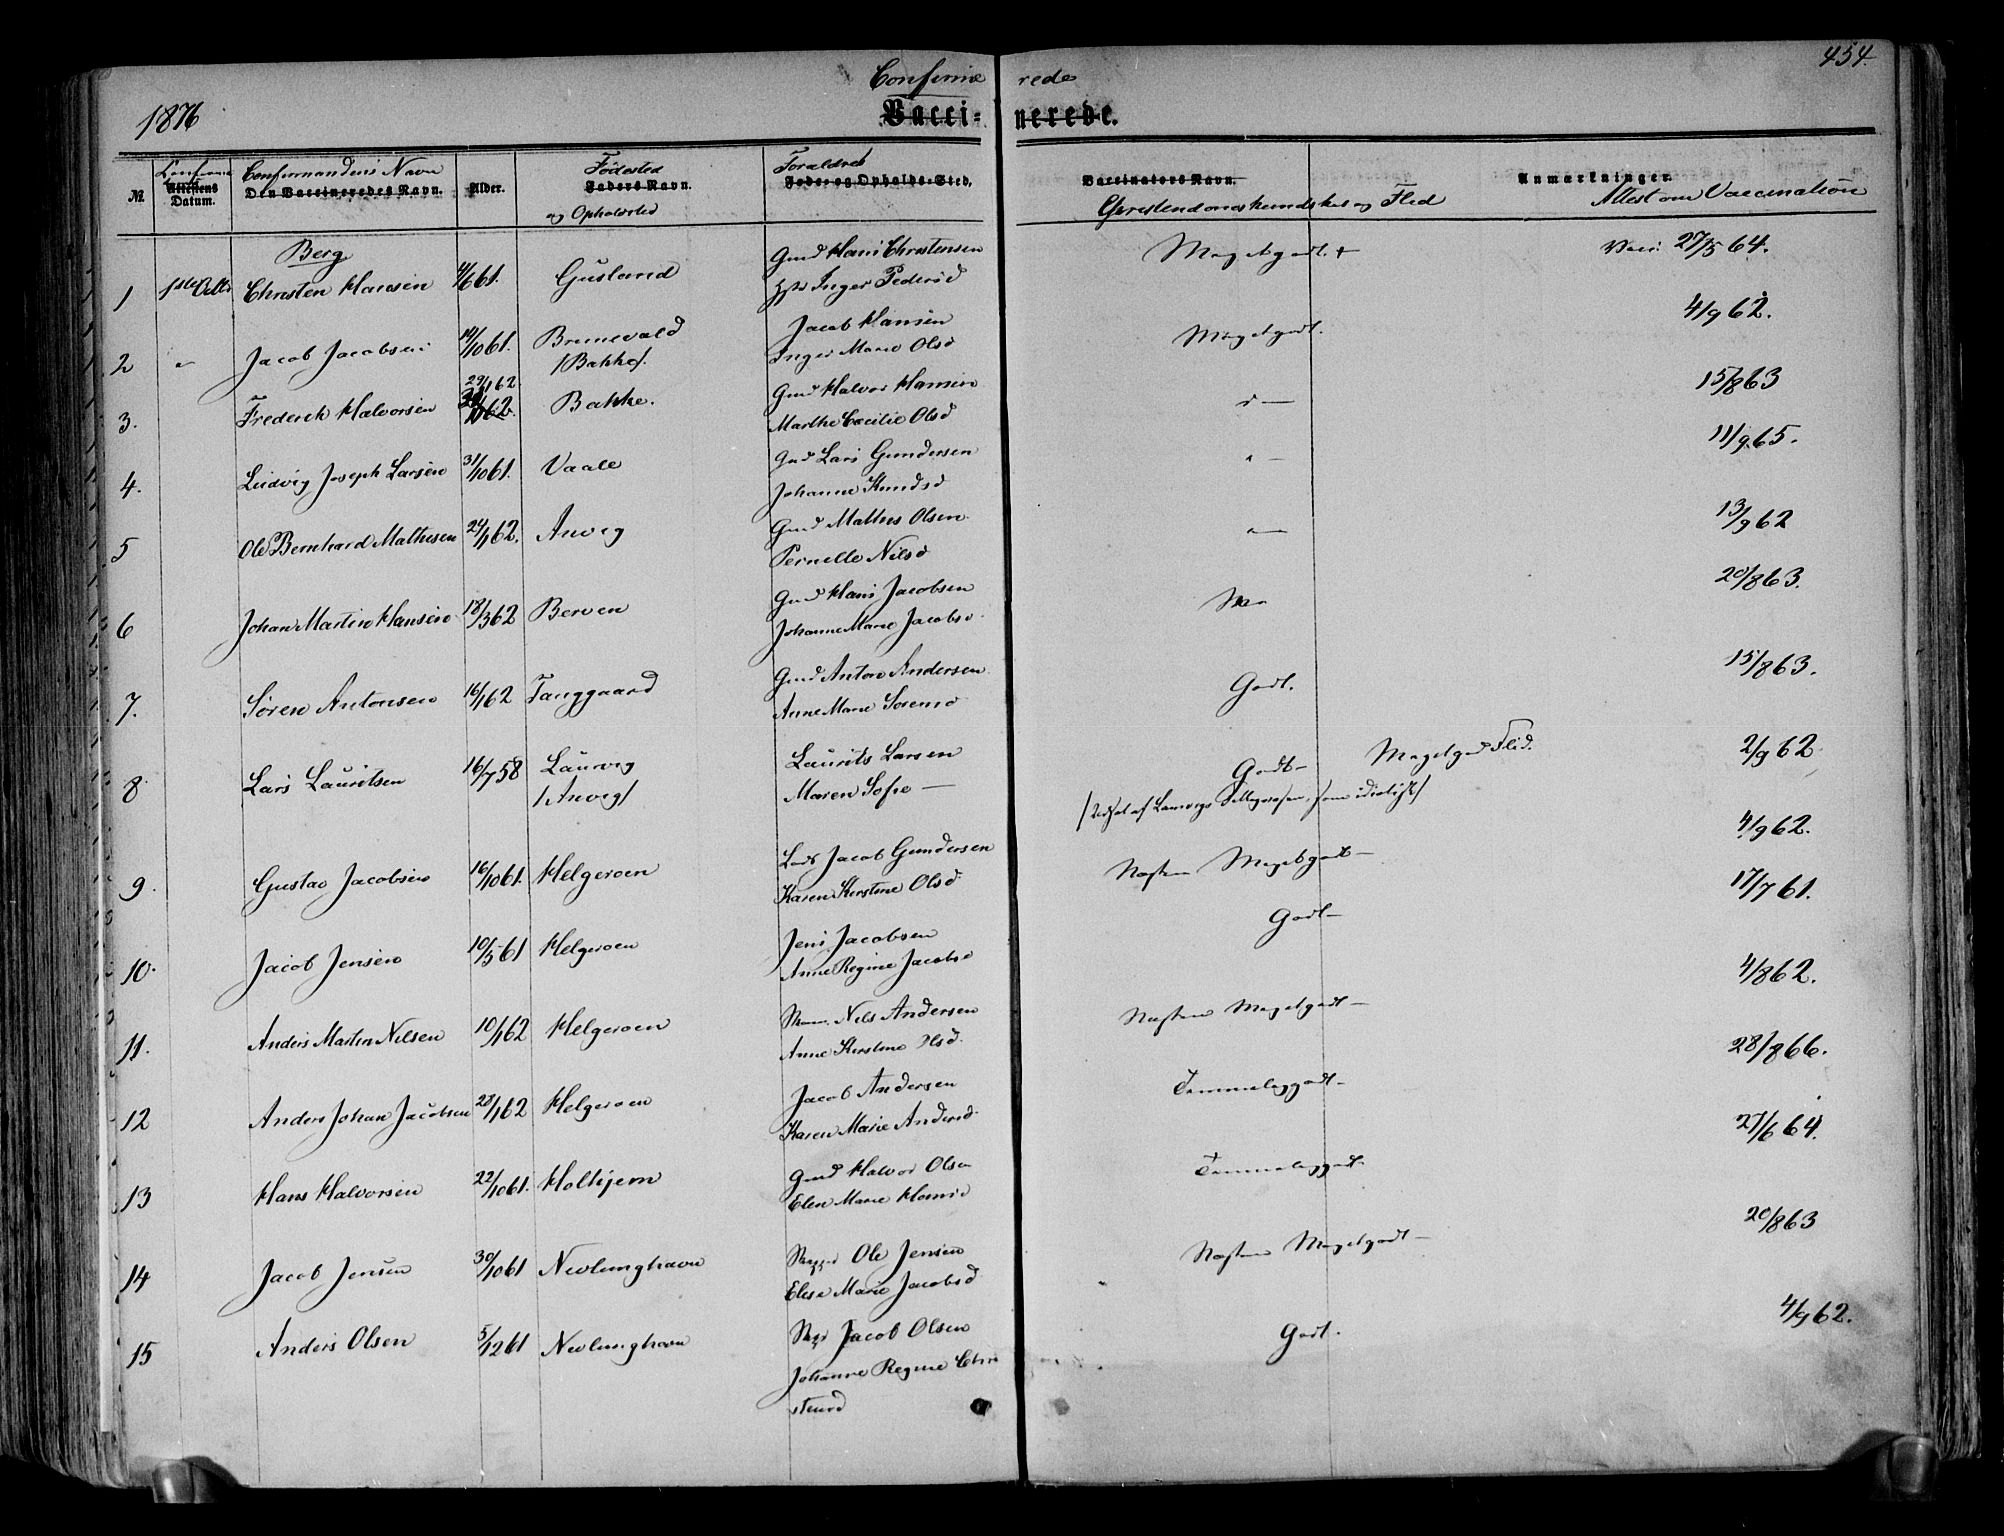 454.
Confirme rede
1876
Vacci- nerede.
Confirma
Confirmandens Navn
Födested
Foraldres
No.
Attestens Datum.
Den Vaccineredes Navn.
Alder.
Faders Navn.
Føde- og Opholds-Sted.
Vaccinators Navn.
Anmærkninger.
og Opholdsted
Christendomskundskab og Flid
Attest om Vaccination
Berg
1 1ste Octbr Christen Hansen 4/6 61. Gusland
Gmd Hans Christensen
Inger Pedersd
Megetgodt. +
Vacc. 27/5 64.
2 " Jacob Jacobsen 14/10 61. Brunevald
/Bakke/.
Jacob Hansen
Inger Marie Olsd
Megetgodt.
4/9 62.
3. Frederik Halvorsen 29/1 62. Bakke.
Gmd Halvor Hansen
Marthe Cæcilie Olsd
" —
15/8 63
4. Ludvig Joseph Larsen 31/10 61. Vaale
Gmd Lars Gundersen
Johanne Knudsd
" —
11/9 65.
5 Ole Bernhard Mathisen 24/1 62. Anvig
Gmd Mathis Olsen
Pernelle Nilsd
" —
13/9 62
6 Johan Martin Hansen 18/3 62 Berven
Gmd Hans Jacobsen
Johanne Marie Jacobsd.
20/8 63.
7. Sören Antonsen 16/1 62 Tanggaard
Gmd Anton Andersen
Anne Marie Sorensd
Godt.
15/8 63.
8. Lars Lauritsen 16/7 58 Laurvig
/Anvig/
Laurits Larsen
Maren Sofie —
Godt — Megetgod Flid.
2/9 62
9. Gustav Jacobsen 16/10 61. Helgeroen
Lods Jacob Gundersen
Karen Kirstine Olsd.
Næsten Megetgodt —
4/9 62.
10. Jacob Jensen 10/5 61 Helgeroen
Jens Jacobsen
Anne Regine Jacobsd
Godt —
17/7 61.
11. Anders Martin Nilsen 10/1 62 Helgeroen
Nils Andersen
Anne Kirstine Olsd.
Næsten Megetgodt —
4/8 62.
12 Anders Johan Jacobsen 28/1 62 Helgeroen
Jacob Andersen
Karen Marie Andersd.
Temmeliggodt —
28/8 66.
13 Hans Halvorsen 22/10 61. Holtijern
Gmd Halvor Olsen
Elen Marie Hansd
Temmeliggodt.
27/6 64.
14 Jacob Jensen 30/10 61 Nevlunghavn
Ole Jensen
Elise Marie Jacobsd
Næsten Megetgodt —
20/8 63
15 Anders Olsen 5/12 61 Nevlunghavn
Jacob Olsen
Johanne Regine Chri
stensd
Godt.
4/9 62.